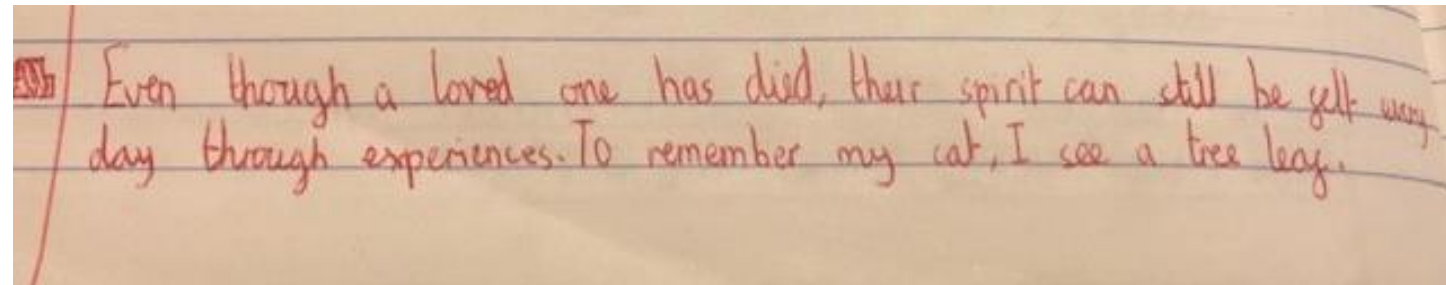 Even though a loved one has died, their spirit can still be felt every
day through experiences. To remember my cat, I see a tree leaf.